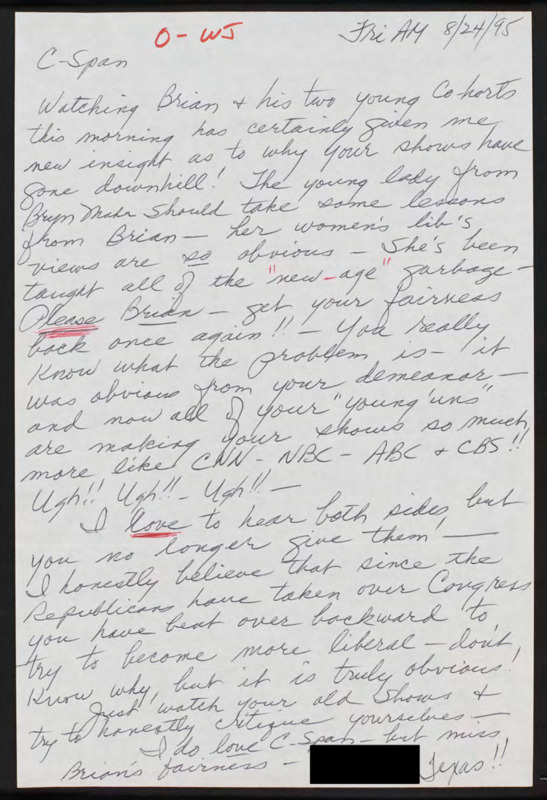 O - WJ
Fri AM 8/24/95
C-Span
Watching Brian & his two young Cohorts
this morning has certainly given me
new insight as to why your shows have
gone downhill! The young lady from
Bryn Mahr should take some lessons
from Brian — her women's lib's
views are so obvious — She's been
taught all of the "new-age" garbage —
Please Brian — get your fairness
back once again!! — You really
know what the problem is — it
was obvious from your demeanor —
and now all of your "young'uns"
are making your shows so much
more like CNN - NBC - ABC & CBS!!
Ugh!! Ugh!! - Ugh!! —
I love to hear both sides, but
you no longer give them! —
I honestly believe that since the
Republicans have taken over Congress
you have bent over backward to
try to become more liberal — don't
know why, but it is truly obvious!
Just watch your old shows &
try to honestly critique yourselves —
I do love C-Span — but miss
Brian's fairness — Texas!!